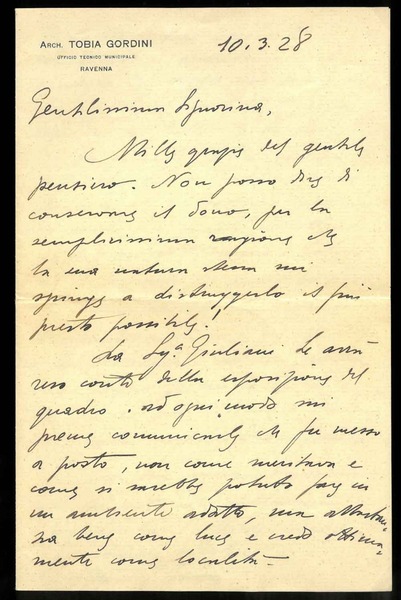 ARCH. TOBIA GORDINI
UFFICIO TECNICO MUNICIPALE
RAVENNA
10.3.28
Gentilissima Signorina,
Mille grazie del gentile
pensiero. Non posso dire di
conservare il dono, per la
semplicissima ragione che
la sua natura stessa mi
spinge a distruggerlo il più
presto possibile!
La Sigª Giuliani Le avrà
reso conto della esposizione del
quadro. Ad ogni modo mi
preme comunicarle che fu messo
a posto, non come meritava e
come si sarebbe potuto fare in
un ambiente adatto, ma abbastan=
za bene come luce e credo ottima=
mente come località.